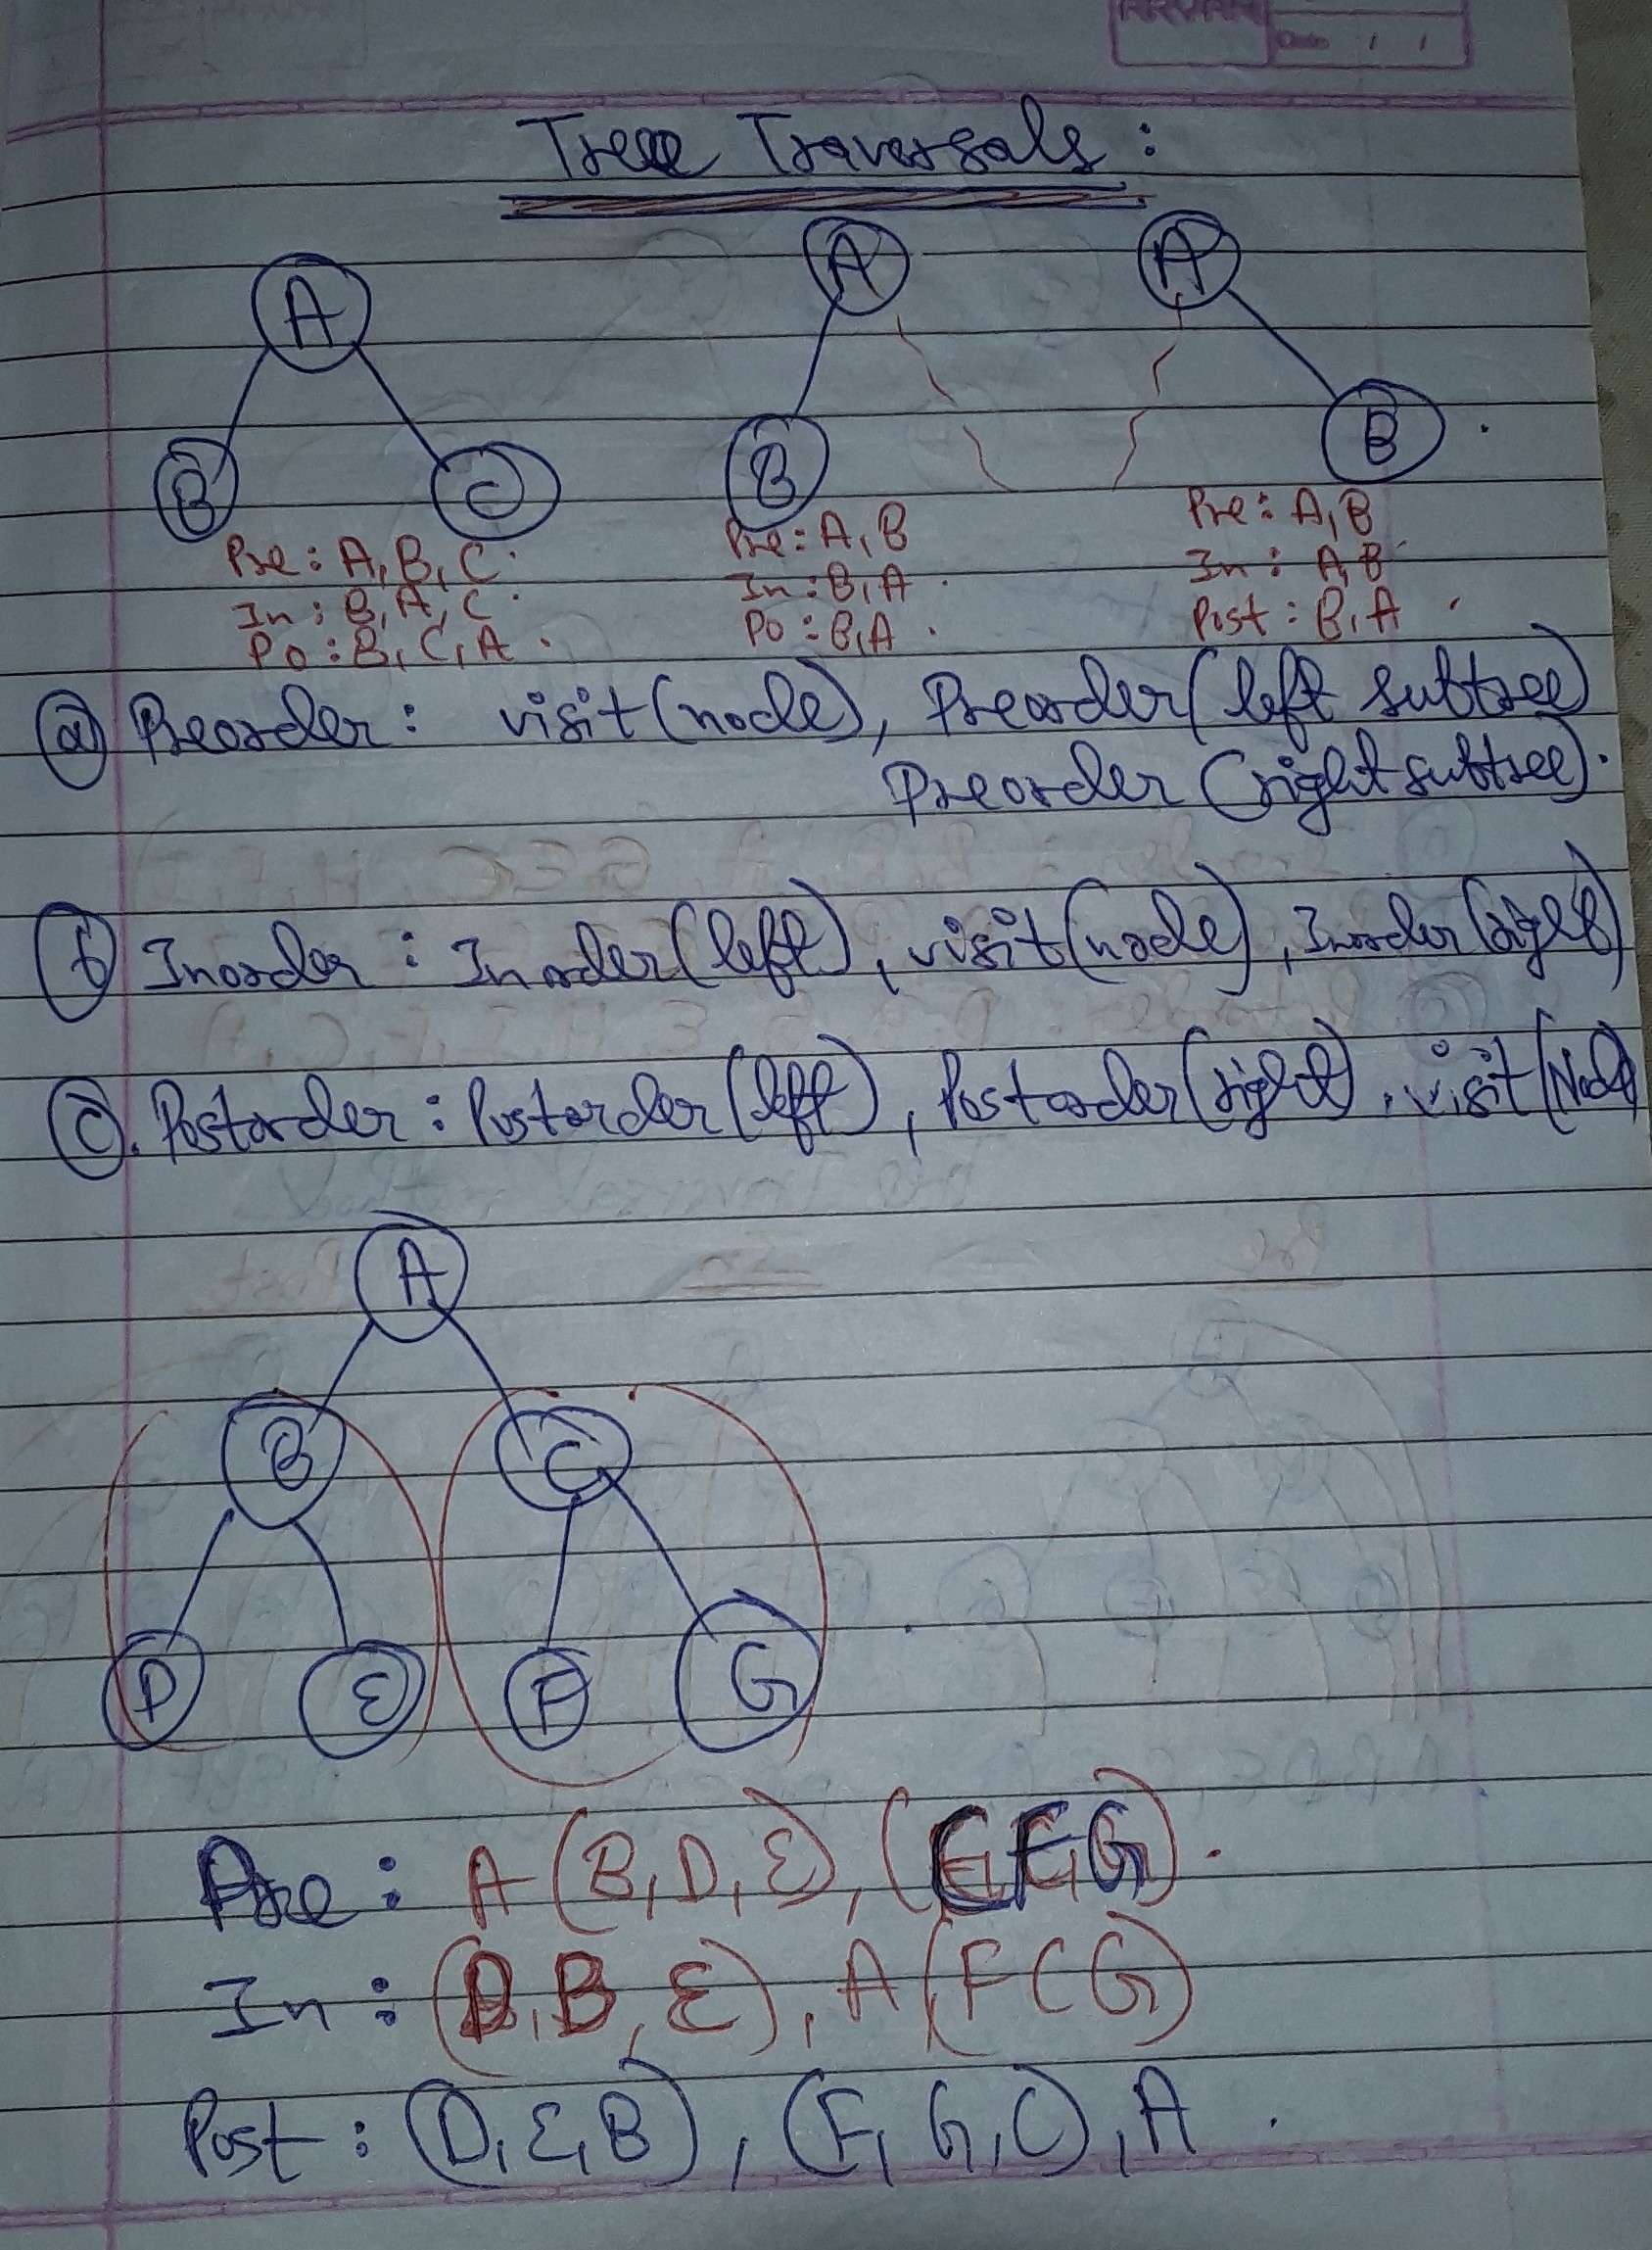 Date / /
Tree Traversals :
A
B C
A
B
A
B
Pre : A, B, C.
In : B, A, C.
Po : B, C, A.
Pre : A, B
In : B, A.
Po : B, A.
Pre : A, B
In : A, B
Post : B, A.
(a) Preorder : visit (node), Preorder (left subtree)
Preorder (right subtree).
(b) Inorder : Inorder (left), visit (node), Inorder (right)
(c). Postorder : Postorder (left), Postorder (right), visit (Node)
A
B C
D E F G
Pre : A (B, D, E), (C F G).
In : (D, B, E), A, (F C G)
Post : (D, E, B), (F, G, C), A.